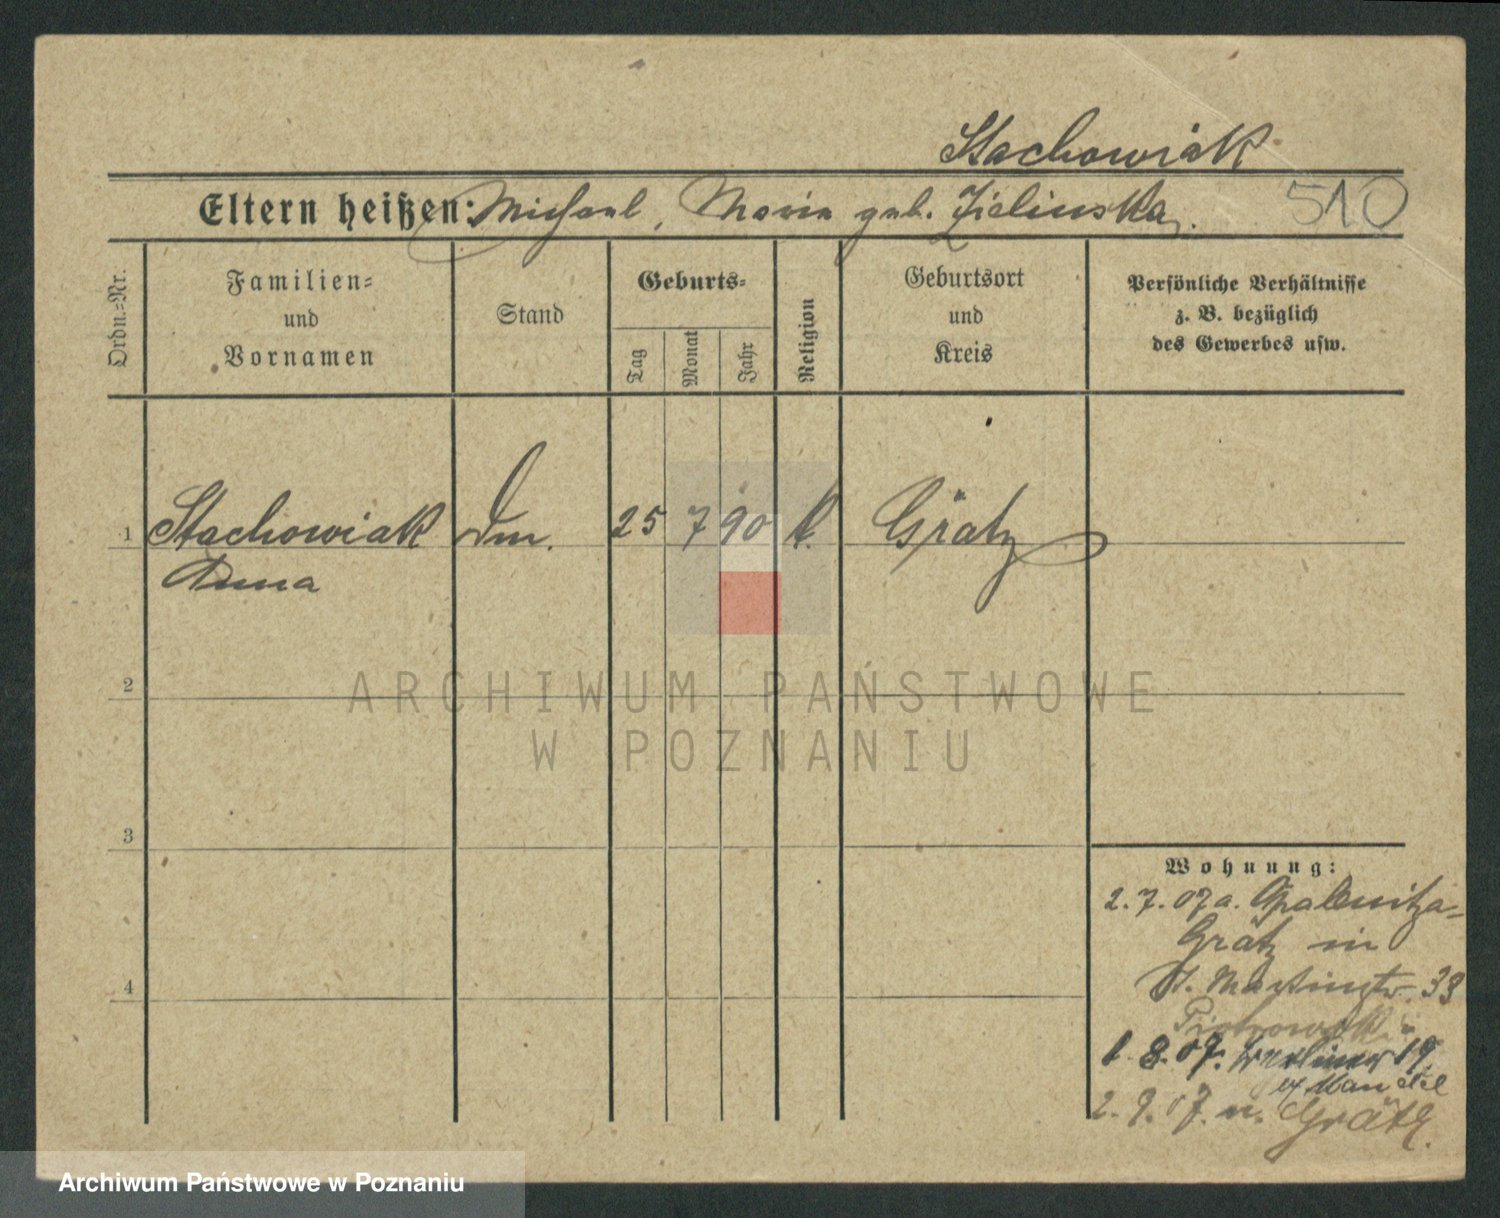 Stachowiak
Eltern heißen: Michael, Maria geb. Zielinska.
510
Ordn.=Nr.
Familien=
und
Vornamen
Stand
Geburts=
Tag
Monat
Jahr
Religion
Geburtsort
und
Kreis
Persönliche Verhältnisse
z. B. bezüglich
des Gewerbes usw.
1 Stachowiak Dm. 25 7 90 k. Grätz
Anna
2
3
4
Wohnung:
2. 7. 07 a. Opalenitza-
Grätz in
St. Martinstr. 33
1. 8. 07. Berliner 19
b/ Mandel
2. 9. 07. n. Grätz.
ARCHIWUM PAŃSTWOWE
W POZNANIU
Archiwum Państwowe w Poznaniu